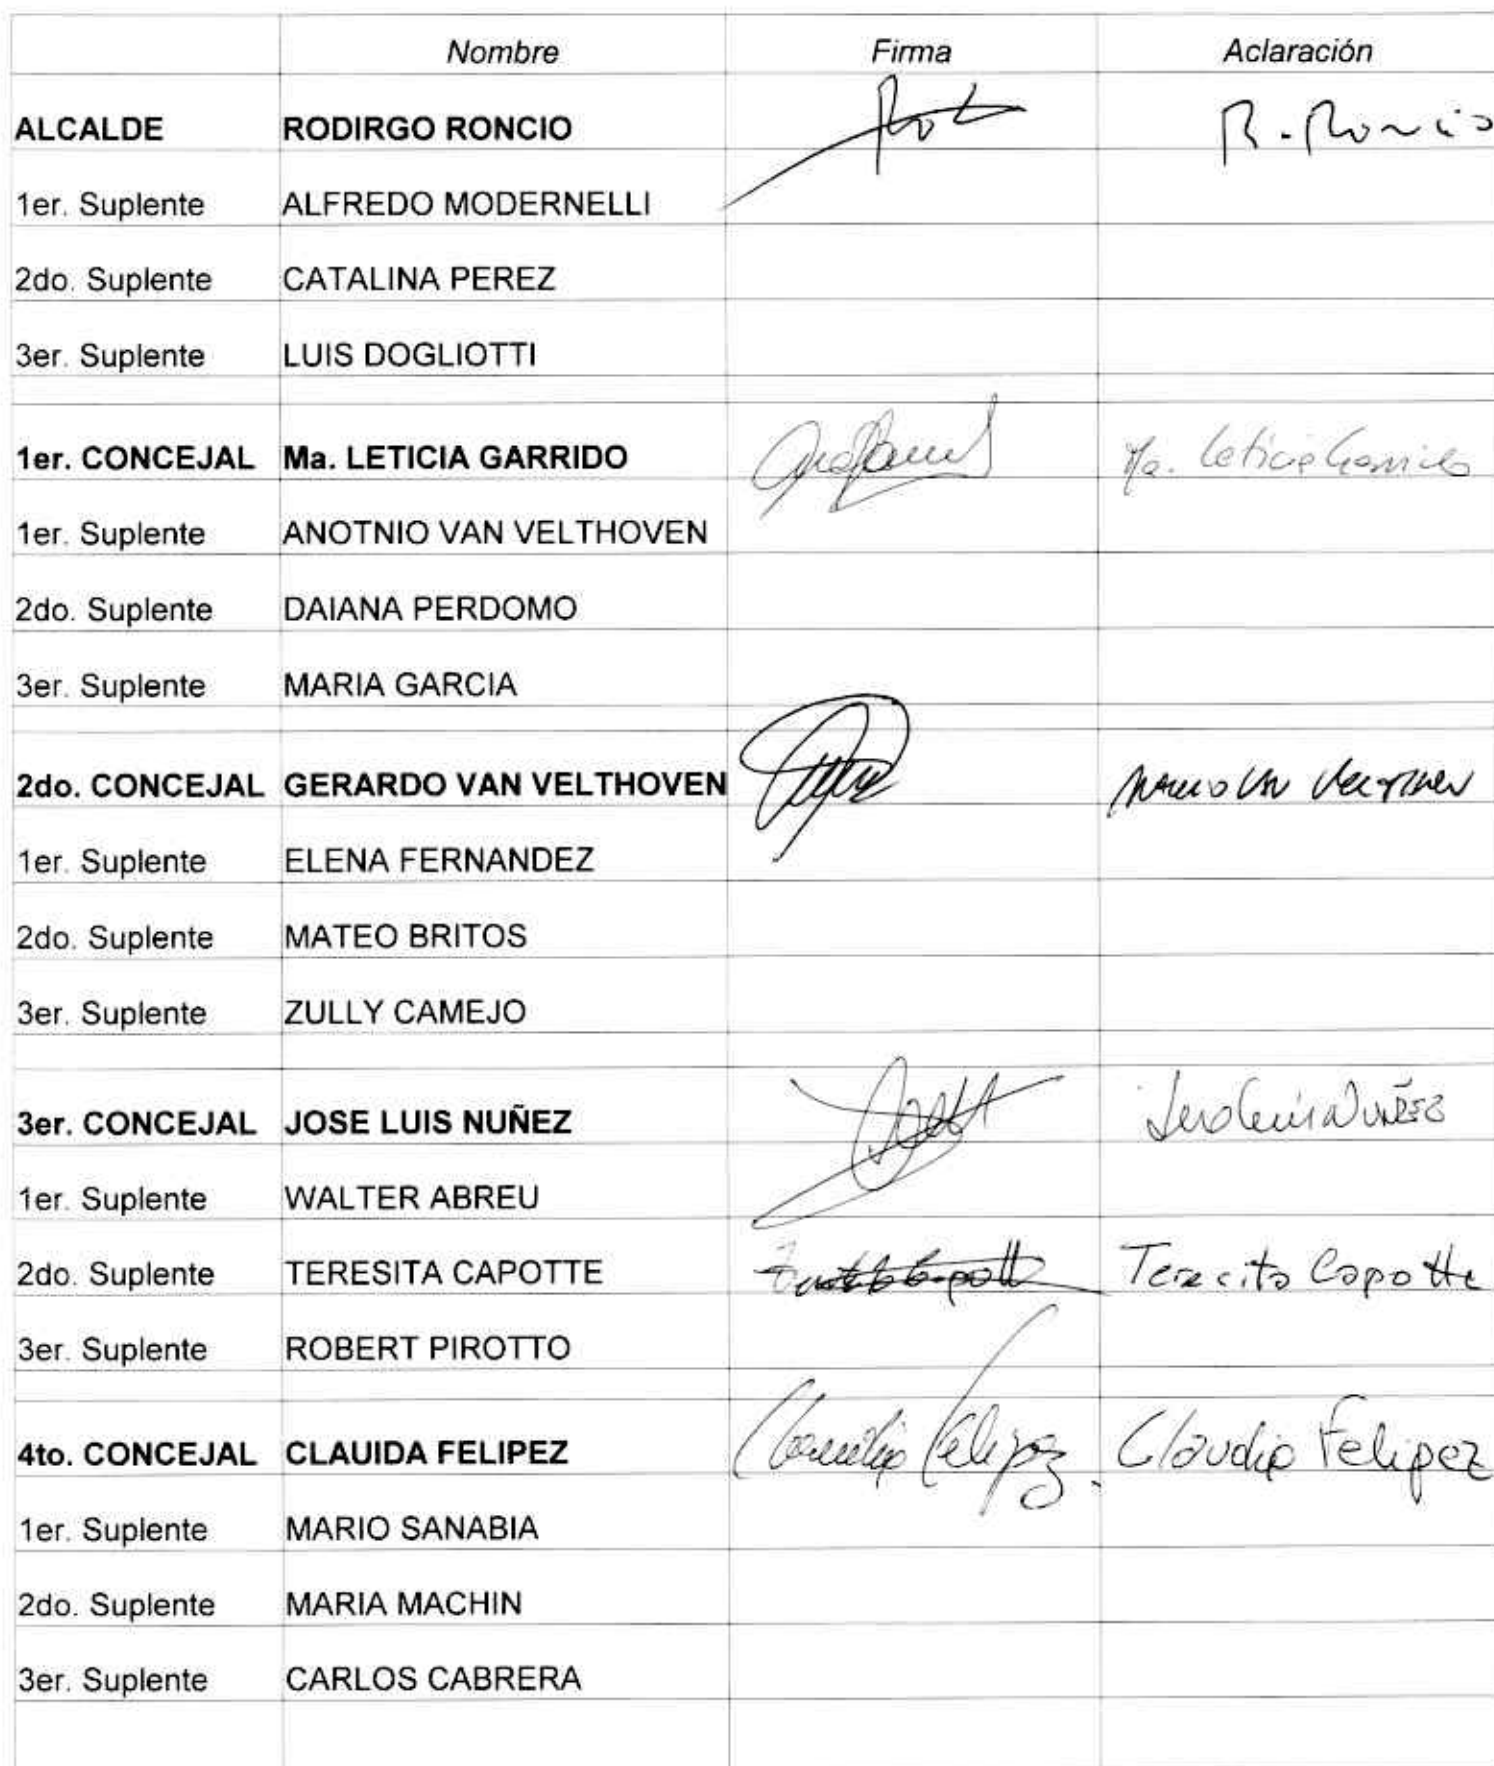 Nombre Firma Aclaración
ALCALDE RODIRGO RONCIO R. Roncio
1er. Suplente ALFREDO MODERNELLI
2do. Suplente CATALINA PEREZ
3er. Suplente LUIS DOGLIOTTI
1er. CONCEJAL Ma. LETICIA GARRIDO Ma. Leticia Garrido
1er. Suplente ANOTNIO VAN VELTHOVEN
2do. Suplente DAIANA PERDOMO
3er. Suplente MARIA GARCIA
2do. CONCEJAL GERARDO VAN VELTHOVEN Van Velthoven
1er. Suplente ELENA FERNANDEZ
2do. Suplente MATEO BRITOS
3er. Suplente ZULLY CAMEJO
3er. CONCEJAL JOSE LUIS NUÑEZ Jose Luis NUÑEZ
1er. Suplente WALTER ABREU
2do. Suplente TERESITA CAPOTTE Teresita Capotte
3er. Suplente ROBERT PIROTTO
4to. CONCEJAL CLAUIDA FELIPEZ Claudia Felipez. Claudia Felipez
1er. Suplente MARIO SANABIA
2do. Suplente MARIA MACHIN
3er. Suplente CARLOS CABRERA